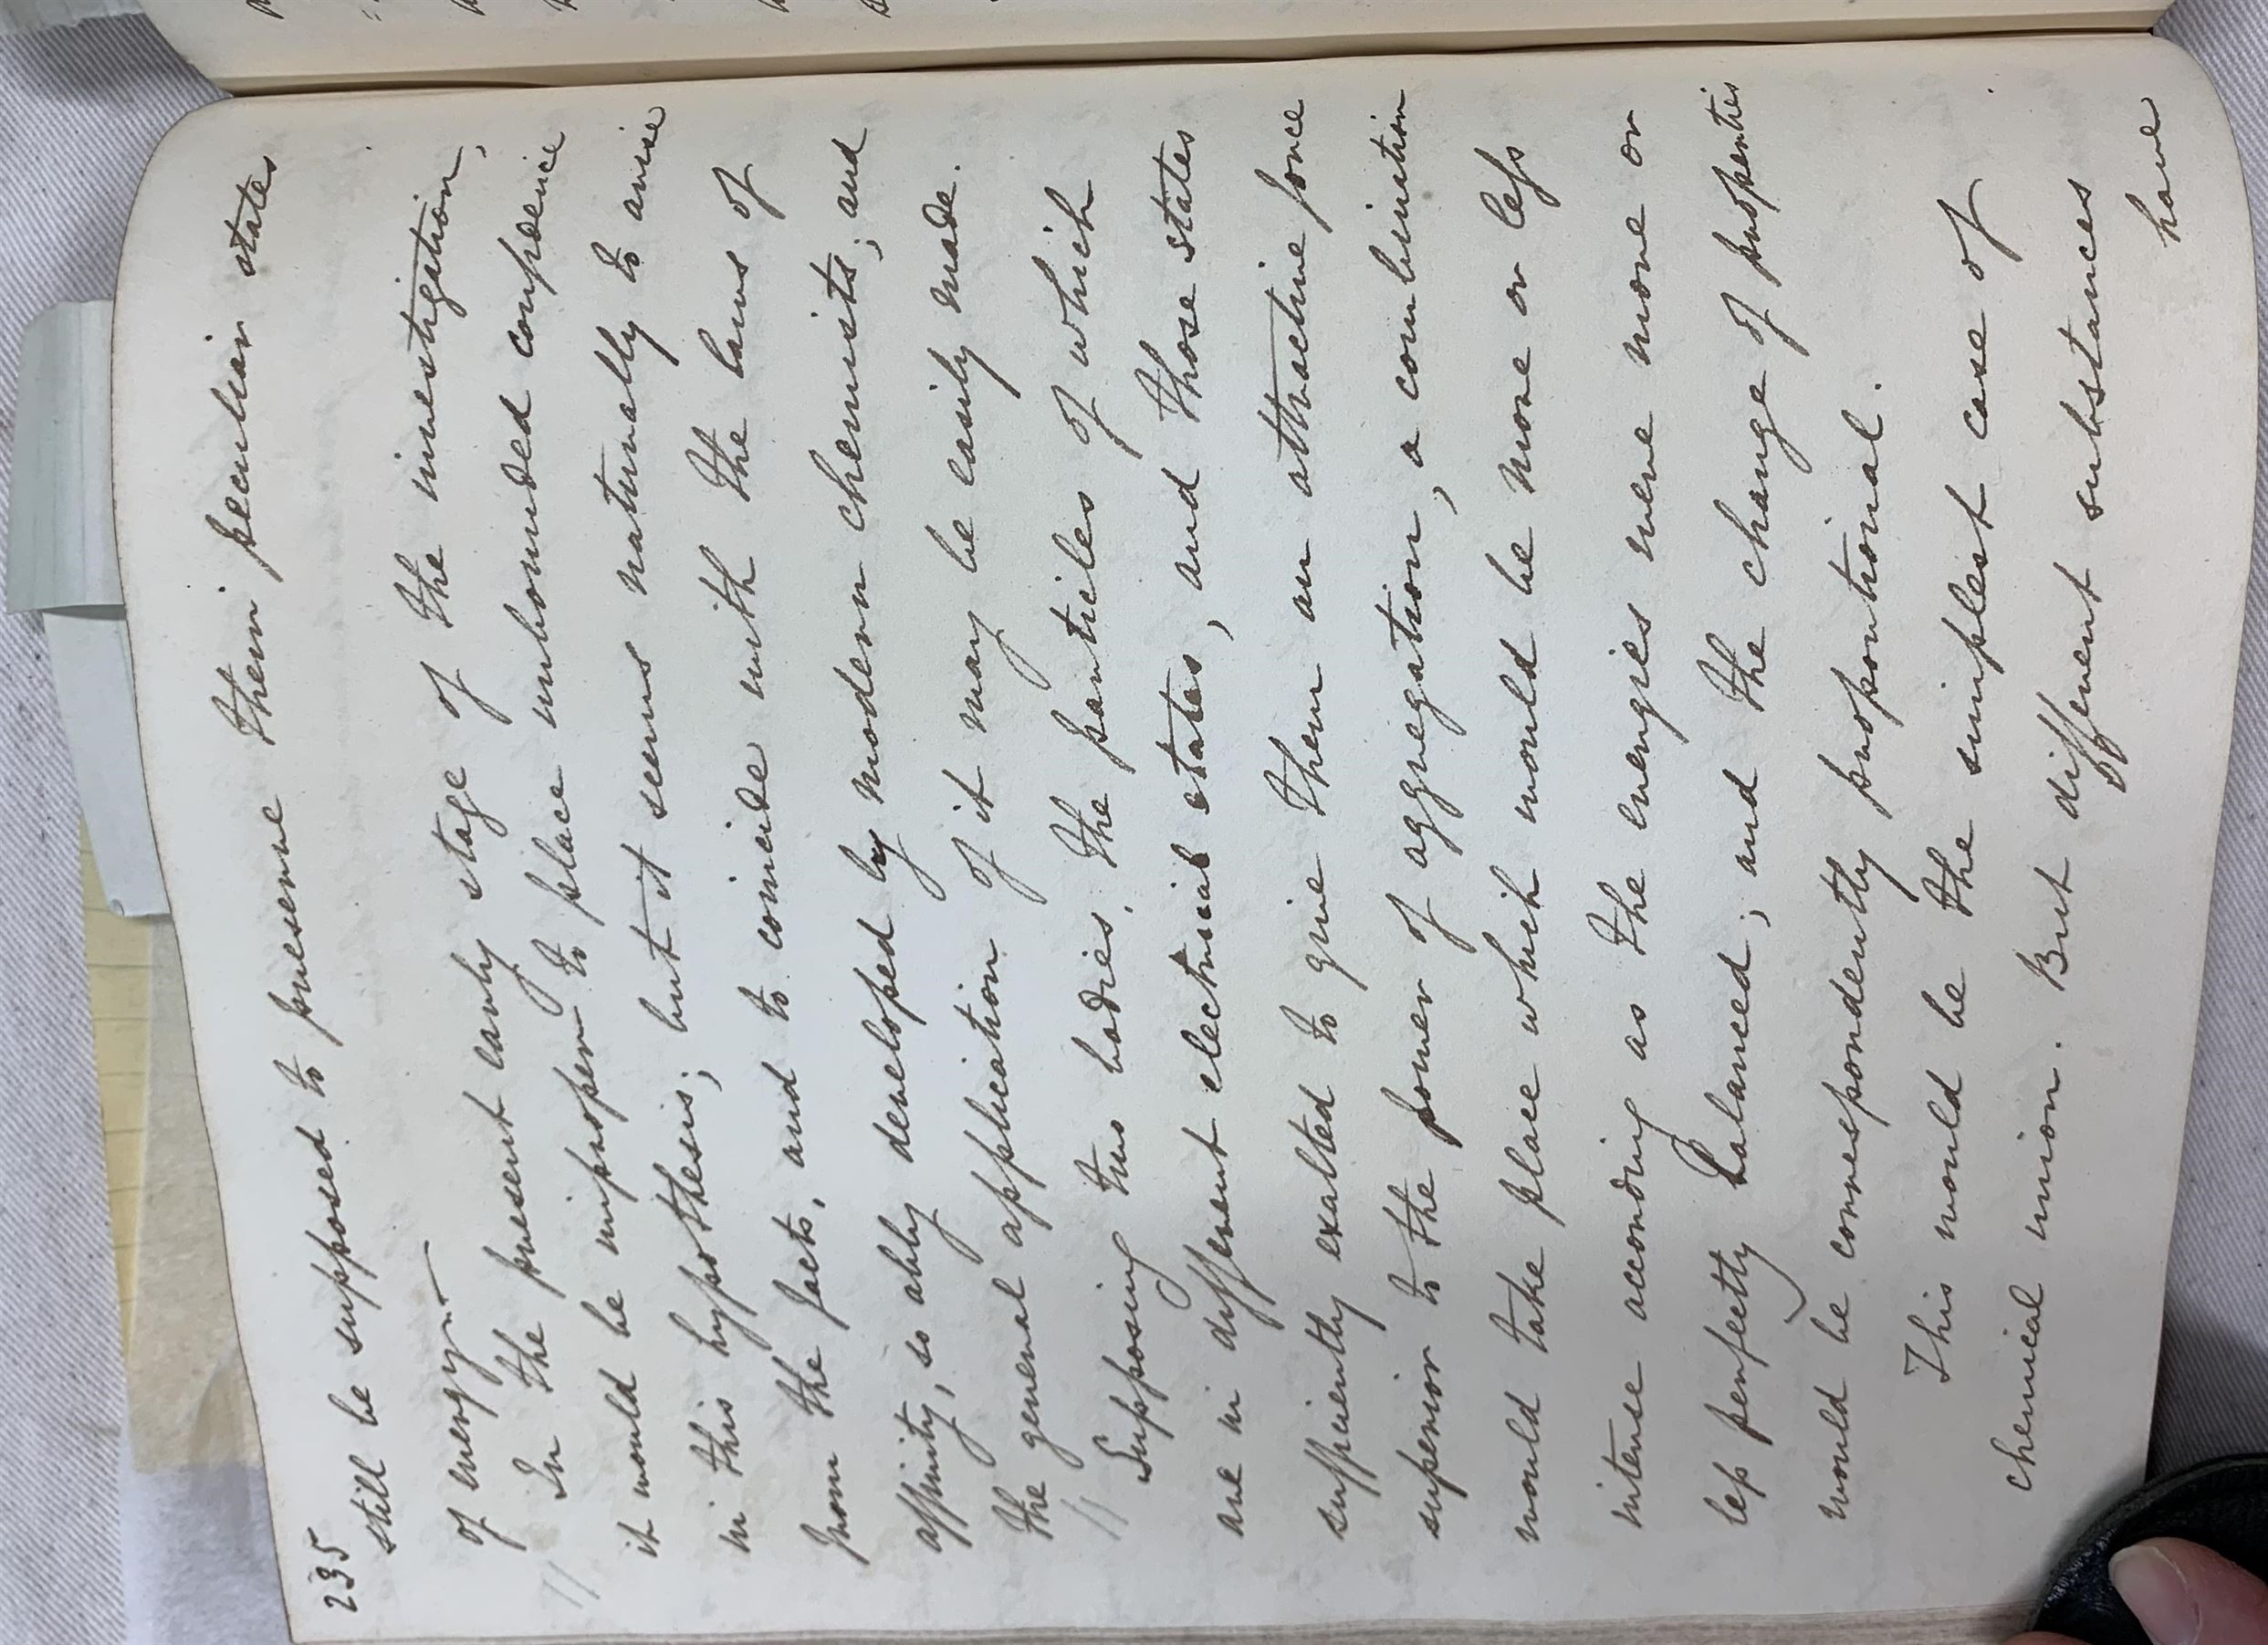 235
still be supposed to preserve their peculiar states
of energy.—
// In the present early stage of the investigation,
it would be improper to place unbounded confidence
in this hypothesis; but it seems naturally to arise
from the facts, and to coincide with the laws of
affinity, so ably developed by modern chemists; and
the general application of it may be easily made.
// Supposing two bodies, the particles of which
are in different electrical states, and those states
sufficiently exalted to give them an attractive force
superior to the power of aggregation, a combination
would take place which would be more or less
intense according as the energies were more or
less perfectly balanced; and the change of properties
would be correspondently proportional.
This would be the simplest case of
chemical union. But different substances
have